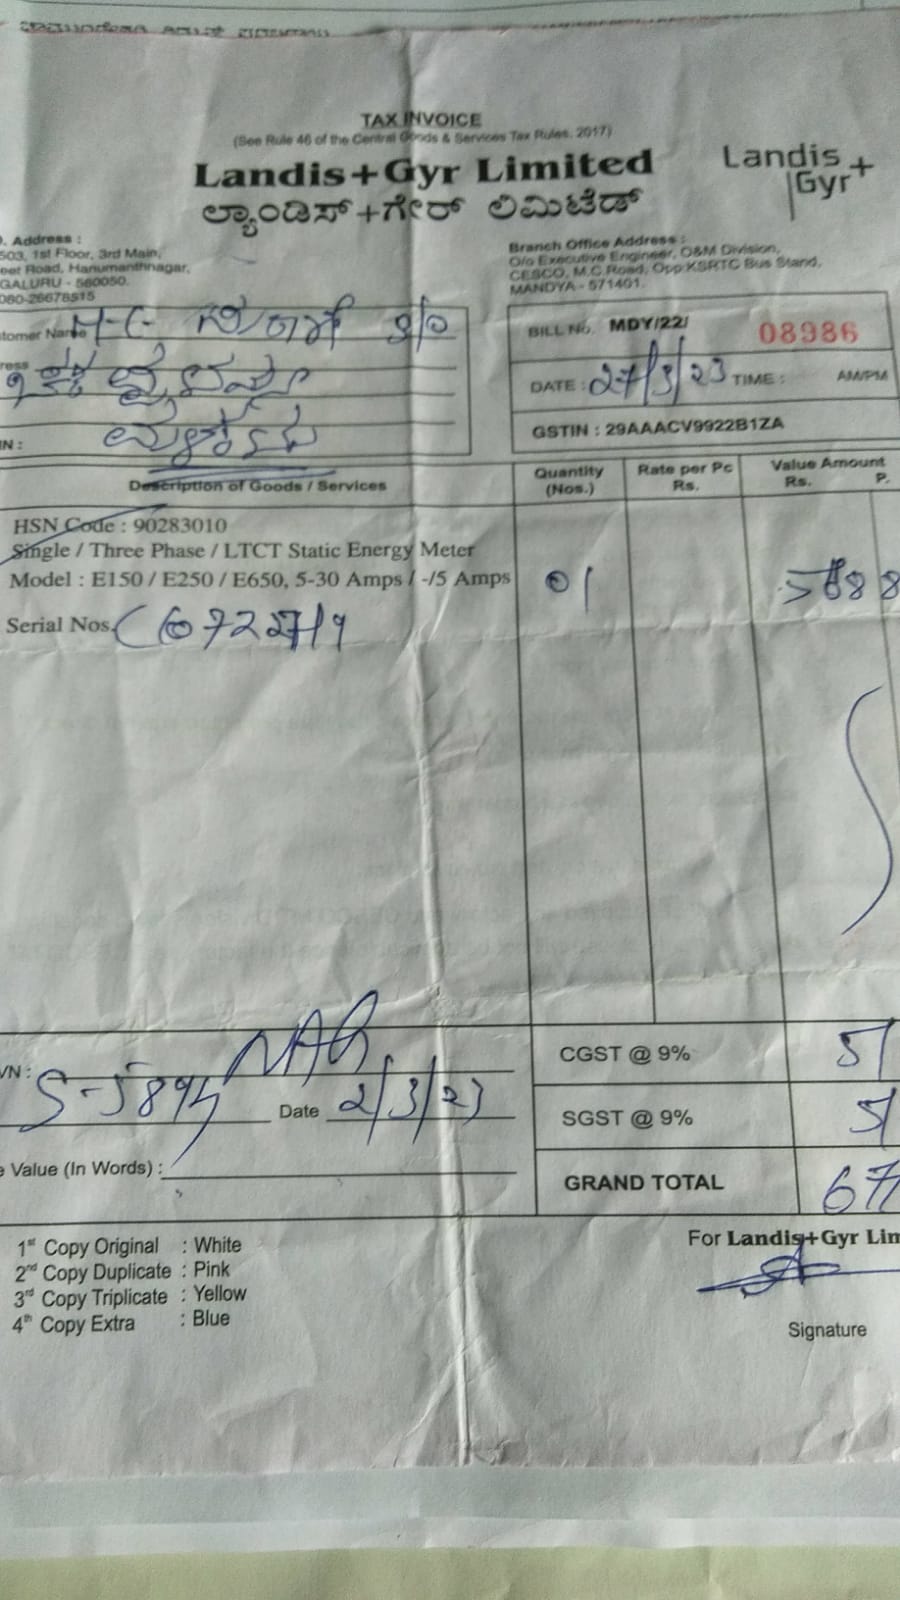 TAX INVOICE
(See Rule 46 of the Central Goods & Services Tax Rules, 2017)
Landis+Gyr Limited
ಲ್ಯಾಂಡಿಸ್+ಗೇರ್ ಲಿಮಿಟೆಡ್
Landis
Gyr+
. Address :
503, 1st Floor, 3rd Main,
eet Road, Hanumanthnagar,
GALURU - 560050.
080-26678515
Branch Office Address :
O/o Executive Engineer, O&M Division,
CESCO, M.C.Road, Opp:KSRTC Bus Stand,
MANDYA - 571401.
tomer Name H-C-
ress
IN :
BILL No. MDY/22/ 08986
DATE : 27/3/23 TIME : AM/PM
GSTIN : 29AAACV9922B1ZA
Description of Goods / Services
Quantity (Nos.)
Rate per Pc Rs.
Value Amount Rs. P.
HSN Code : 90283010
Single / Three Phase / LTCT Static Energy Meter
Model : E150 / E250 / E650, 5-30 Amps / -/5 Amps 01
Serial Nos.
VN :
Date 2/3/23
CGST @ 9% 5/
SGST @ 9% 5/
e Value (In Words) :
GRAND TOTAL 67
1st Copy Original : White
2nd Copy Duplicate : Pink
3rd Copy Triplicate : Yellow
4th Copy Extra : Blue
For Landis+Gyr Lim
Signature